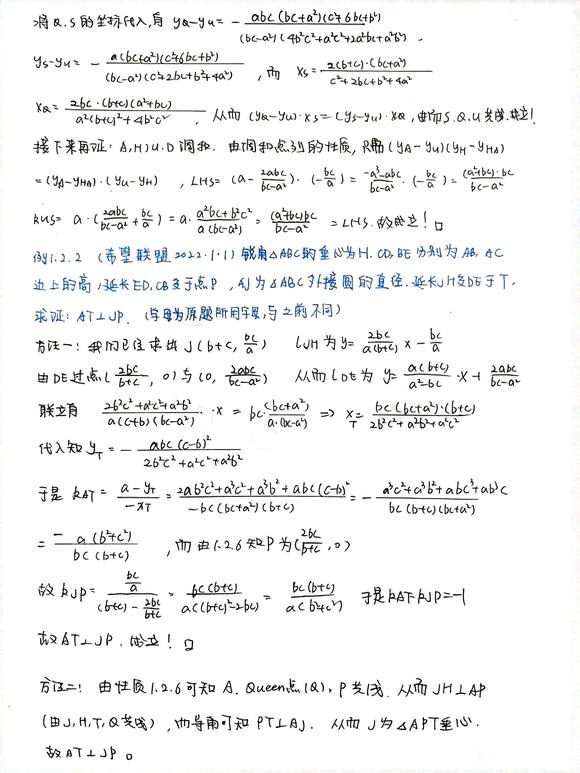 将Q.S的坐标代入,有 y_Q-y_U = - \frac{abc(bc+a²)(c²+6bc+b²)}{(bc-a²)(4b²c²+a²c²+2a²bc+a²b²)}.
y_S-y_U = - \frac{a(bc+a²)(c²+6bc+b²)}{(bc-a²)(c²+2bc+b²+4a²)}, 而 x_S = \frac{2(b+c)·(bc+a²)}{c²+2bc+b²+4a²}
x_Q = \frac{2bc·(b+c)(a²+bc)}{a²(b+c)²+4b²c²}, 从而 (y_Q-y_U)·x_S = (y_S-y_U)·x_Q, 由而S.Q.U共线.成立!
接下来再证: A,H;U.D调和. 由调和点列的性质, 只需 (y_A-y_U)(y_H-y_{HA})
=(y_A-y_{HA})·(y_U-y_H), LHS = (a-\frac{2abc}{bc-a²})·(-\frac{bc}{a}) = \frac{-a³-abc}{bc-a²}·(-\frac{bc}{a}) = \frac{(a²+bc)·bc}{bc-a²}
RHS = a·(\frac{2abc}{bc-a²}+\frac{bc}{a}) = a·\frac{a²bc+b²c²}{a(bc-a²)} = \frac{(a²+bc)bc}{bc-a²} = LHS. 故成立! □
例1.2.2 (希望联盟2022.1.1) 锐角△ABC的垂心为H. CD,BE分别为AB, AC
边上的高,延长ED,CB交于点P, AJ为△ABC外接圆的直径.延长JH交DE于T.
求证: AT⊥JP. (字母为原题所用字母,与之前不同)
方法一: 我们已经求出 J(b+c, \frac{bc}{a}) l_{JH}为 y = \frac{2bc}{a(b+c)} x - \frac{bc}{a}
由DE过点(\frac{2bc}{b+c}, 0)与(0, \frac{2abc}{bc-a²}) 从而 l_{DE}为 y = \frac{a(b+c)}{a²-bc}·x + \frac{2abc}{bc-a²}
联立有 \frac{2b²c²+a²c²+a²b²}{a(c+b)(bc-a²)}·x = bc·\frac{(bc+a²)}{a·(bc-a²)} ⇒ x_T = \frac{bc(bc+a²)·(b+c)}{2b²c²+a²b²+a²c²}
代入知 y_T = - \frac{abc(c-b)²}{2b²c²+a²c²+a²b²}
于是 k_{AT} = \frac{a-y_T}{-x_T} = \frac{2ab²c²+a³c²+a³b²+abc(c-b)²}{-bc(bc+a²)(b+c)} = - \frac{a³c²+a³b²+abc³+ab³c}{bc(b+c)(bc+a²)}
= \frac{-a(b²+c²)}{bc(b+c)}, 而由1.2.6知P为(\frac{2bc}{b+c}, 0)
故 k_{JP} = \frac{\frac{bc}{a}}{(b+c)-\frac{2bc}{b+c}} = \frac{bc(b+c)}{a((b+c)²-2bc)} = \frac{bc(b+c)}{a(b²+c²)} 于是k_{AT}·k_{JP}=-1
故AT⊥JP. 成立! □
方法二: 由性质1.2.6可知 A, Queen点(Q), P共线. 从而 JH⊥AP
(由J,H,T,Q共线), 而导角可知 PT⊥AJ. 从而J为△APT垂心.
故AT⊥JP。